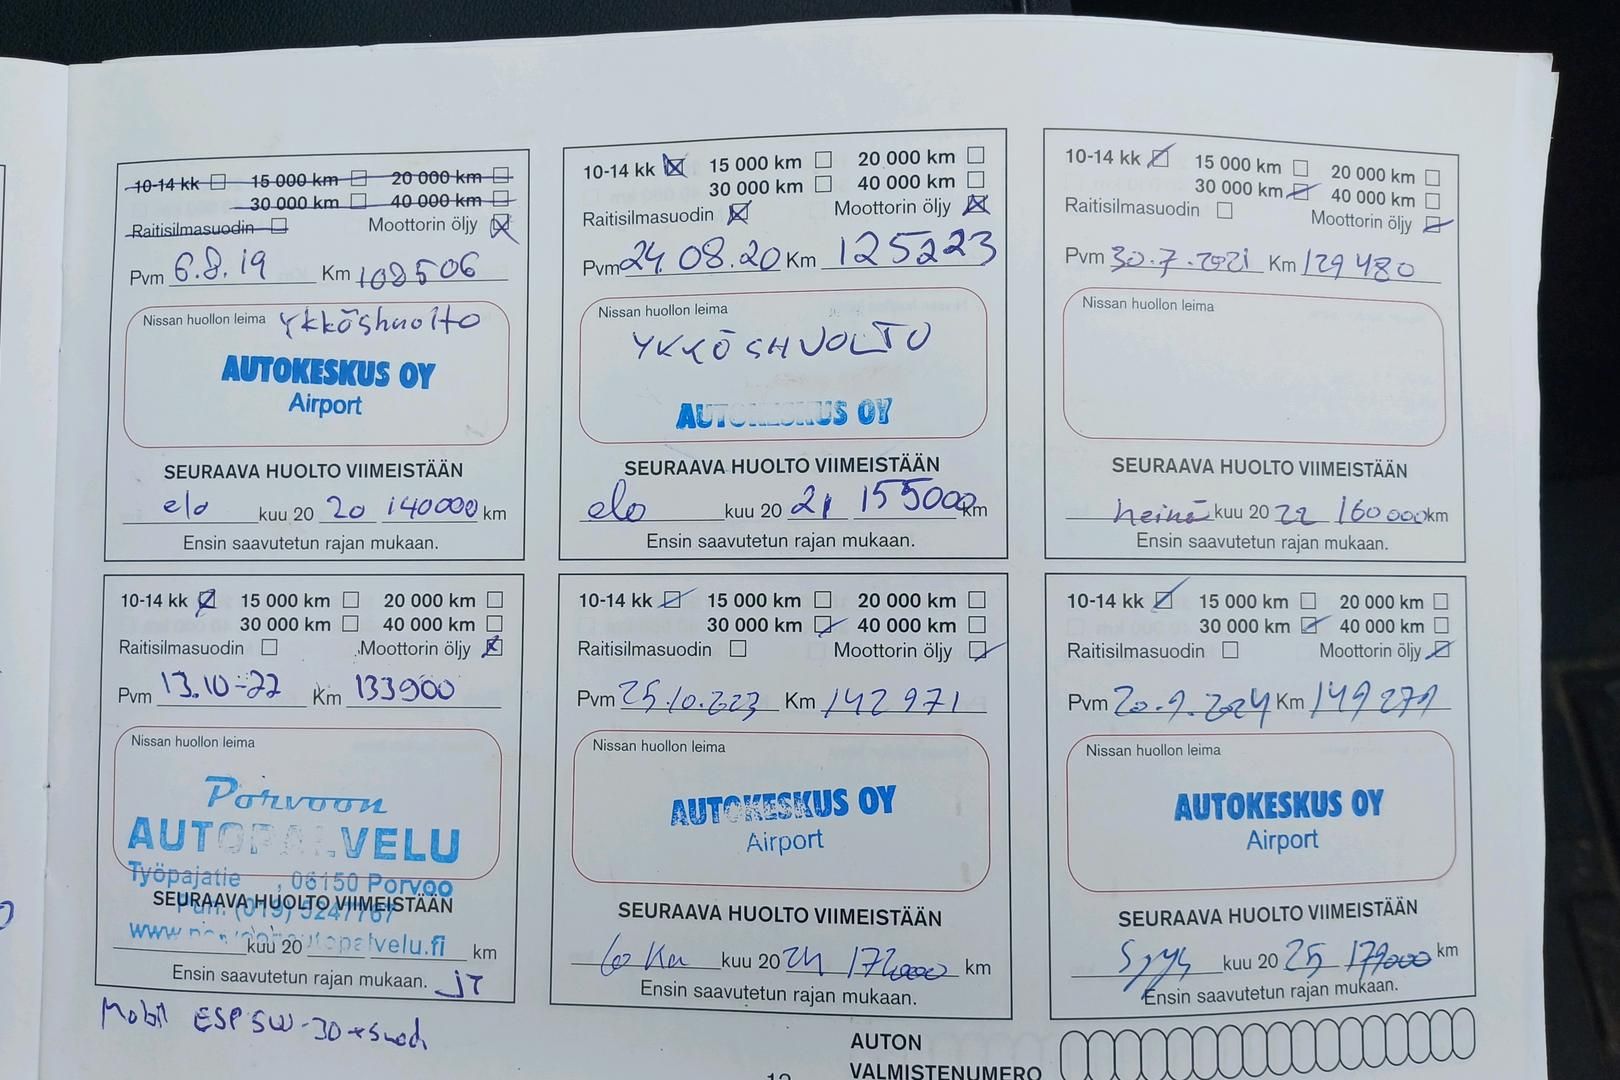 10-14 kk 15 000 km 20 000 km
30 000 km 40 000 km
Raitisilmasuodin Moottorin öljy
Pvm 6.8.19 Km 108506
Nissan huollon leima Ykköshuolto
AUTOKESKUS OY
Airport
SEURAAVA HUOLTO VIIMEISTÄÄN
elo kuu 20 20 140000 km
Ensin saavutetun rajan mukaan.
10-14 kk 15 000 km 20 000 km
30 000 km 40 000 km
Raitisilmasuodin Moottorin öljy
Pvm 24.08.20 Km 125223
Nissan huollon leima
YKKÖSHUOLTO
AUTOKESKUS OY
SEURAAVA HUOLTO VIIMEISTÄÄN
elo kuu 20 21 155000 km
Ensin saavutetun rajan mukaan.
10-14 kk 15 000 km 20 000 km
30 000 km 40 000 km
Raitisilmasuodin Moottorin öljy
Pvm 30.7.2021 Km 129480
Nissan huollon leima
SEURAAVA HUOLTO VIIMEISTÄÄN
heinä kuu 20 22 160000 km
Ensin saavutetun rajan mukaan.
10-14 kk 15 000 km 20 000 km
30 000 km 40 000 km
Raitisilmasuodin Moottorin öljy
Pvm 13.10-22 Km 133900
Nissan huollon leima
Porvoon
AUTOPALVELU
Työpajatie , 06150 Porvoo
SEURAAVA HUOLTO VIIMEISTÄÄN
Puh. (019) 5247767
kuu 20 km
Ensin saavutetun rajan mukaan. JT
Mobil ESP 5W-30 + suod
10-14 kk 15 000 km 20 000 km
30 000 km 40 000 km
Raitisilmasuodin Moottorin öljy
Pvm 25.10.2023 Km 142971
Nissan huollon leima
AUTOKESKUS OY
Airport
SEURAAVA HUOLTO VIIMEISTÄÄN
loka kuu 20 24 172000 km
Ensin saavutetun rajan mukaan.
10-14 kk 15 000 km 20 000 km
30 000 km 40 000 km
Raitisilmasuodin Moottorin öljy
Pvm 20.9.2024 Km 149279
Nissan huollon leima
AUTOKESKUS OY
Airport
SEURAAVA HUOLTO VIIMEISTÄÄN
Syys kuu 20 25 179000 km
Ensin saavutetun rajan mukaan.
AUTON
VALMISTENUMERO